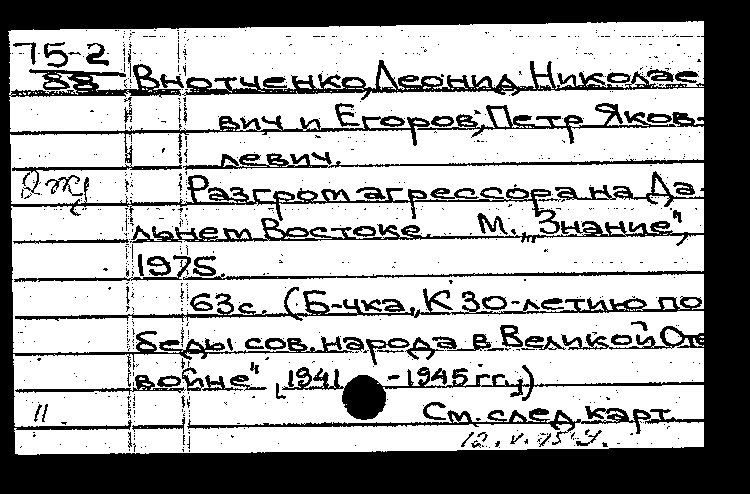 75-2
88
Внотченко, Леонид Николае
вич и Егоров, Петр Яков-
левич.
Разгром агрессора на Да-
льнем Востоке. М., „Знание",
1975.
63с. (Б-чка „К 30-летию по
беды сов. народа в Великой Оте
войне" [1941 -1945 гг.])
11 См. след. карт
12.V.75